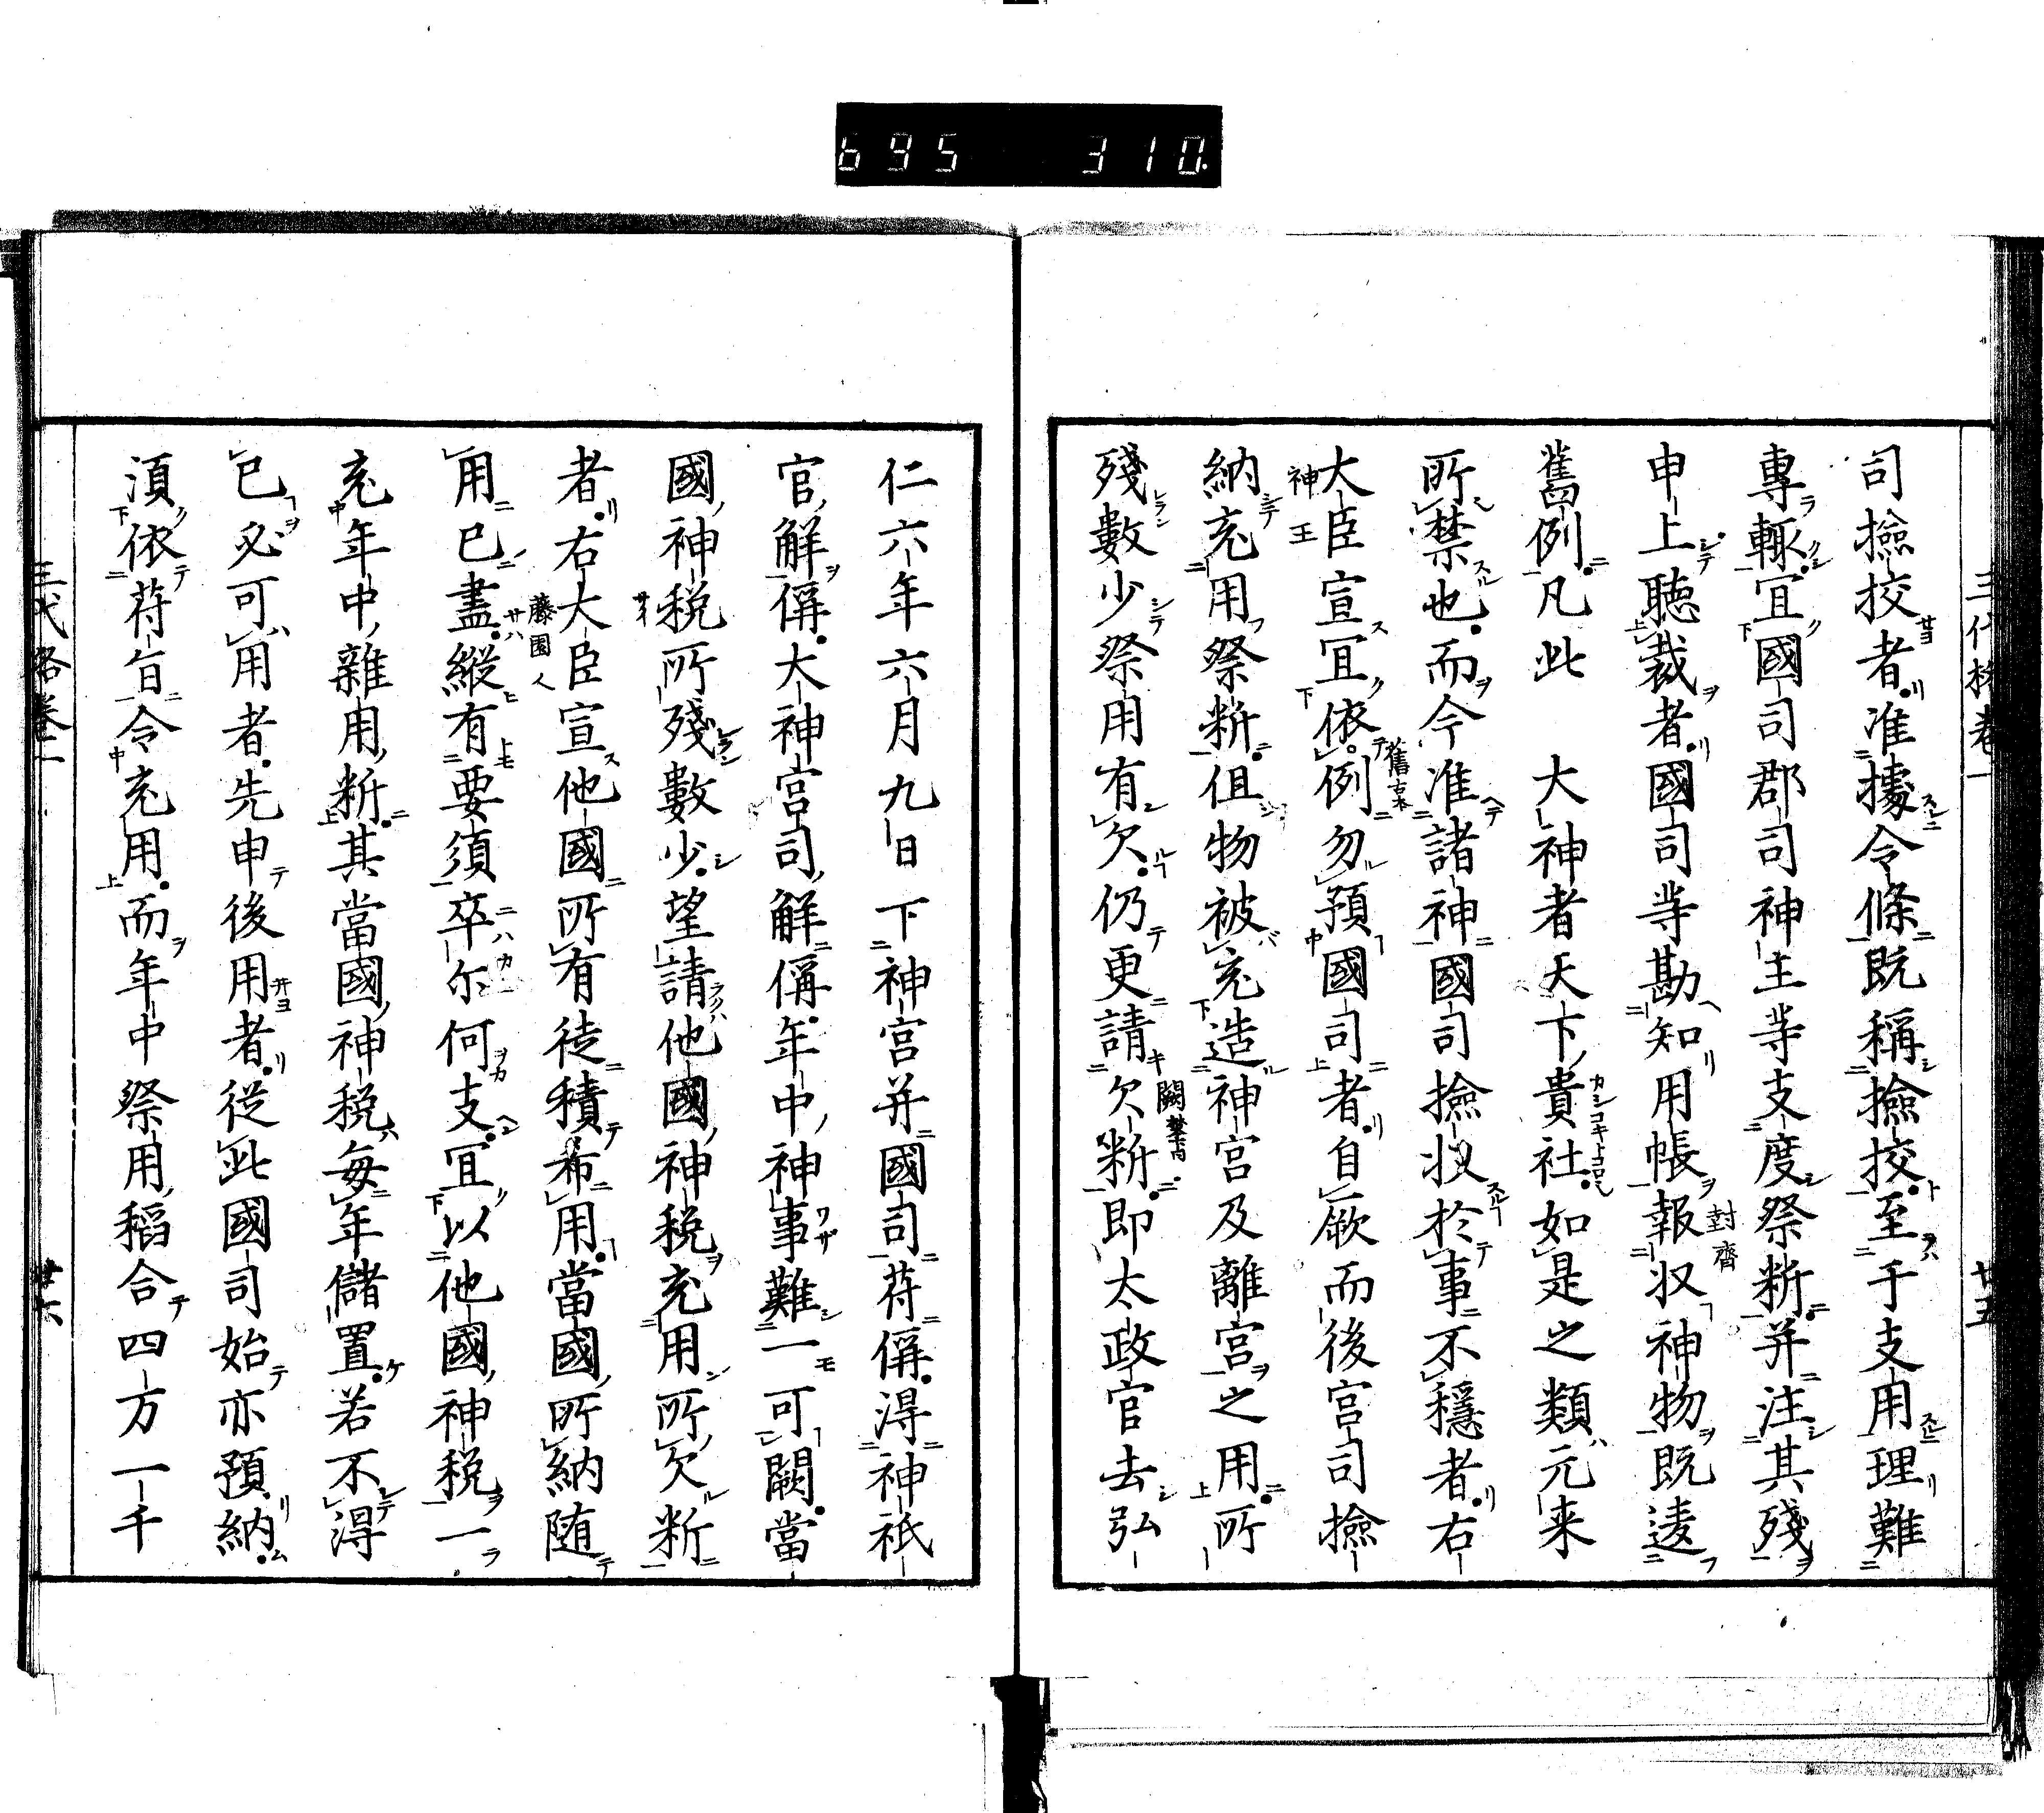 695 310.
三代格卷一 廿五
司撿挍者准據令條既稱撿挍至于支用理難
專輙冝國司郡司神主等支度祭䉼并注其殘
申上聽裁者國司等勘知用帳報収神物既逺
舊例凡此 大神者天下貴社如是之類元来
所禁也而今准諸神國司撿収於事不穩者右
大臣宣冝依例勿預國司者自厥而後宮司撿
納充用祭䉼但物被充造神宮及離宮之用所
殘數少祭用有欠仍更請欠䉼即太政官去弘
仁六年六月九日下神宮并國司苻偁淂神祇
官解偁大神宮司解偁年中神事難一可闕當
國神税所殘數少望請他國神税充用所欠䉼
者右大臣宣他國所有徒積希用當國所納随
用已盡縱有要須卒尓何支冝以他國神税一
充年中雜用䉼其當國神税毎年儲置若不淂
已必可用者先申後用者從此國司始亦預納
湏依苻旨令充用而年中祭用稻合四方一千
三代格卷一 廿六